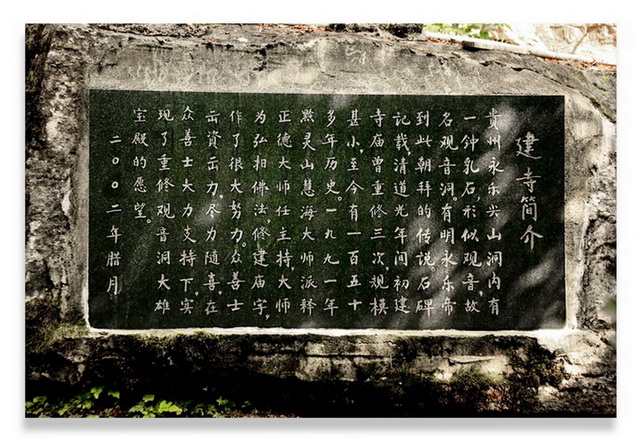 建寺简介
贵州永乐尖山洞内有
一钟乳石,形似观音,故
名观音洞。有明永乐帝
到此朝拜的传说。石碑
记载清道光年间初建
寺庙曾重修三次,规模
甚小,至今有一百五十
多年历史。一九九一年
黔灵山慧海大师派释
正德大师任主持,大师
为弘扬佛法,修建庙宇,
作了很大努力。众善士
出资出力,尽力随喜,在
众善士大力支持下,实
现了重修观音洞大雄
宝殿的愿望。
二00二年腊月